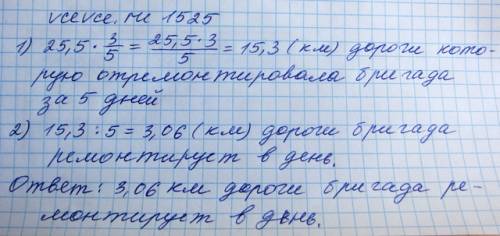 vсеvсе.ne 1525
1) 25,5 · 3/5 = 25,5·3/5 = 15,3 (км) дороги кото-
рую отремонтировала бригада
за 5 дней
2) 15,3 : 5 = 3,06 (км) дороги бригада
ремонтирует в день.
Ответ: 3,06 км дороги бригада ре-
монтирует в день.